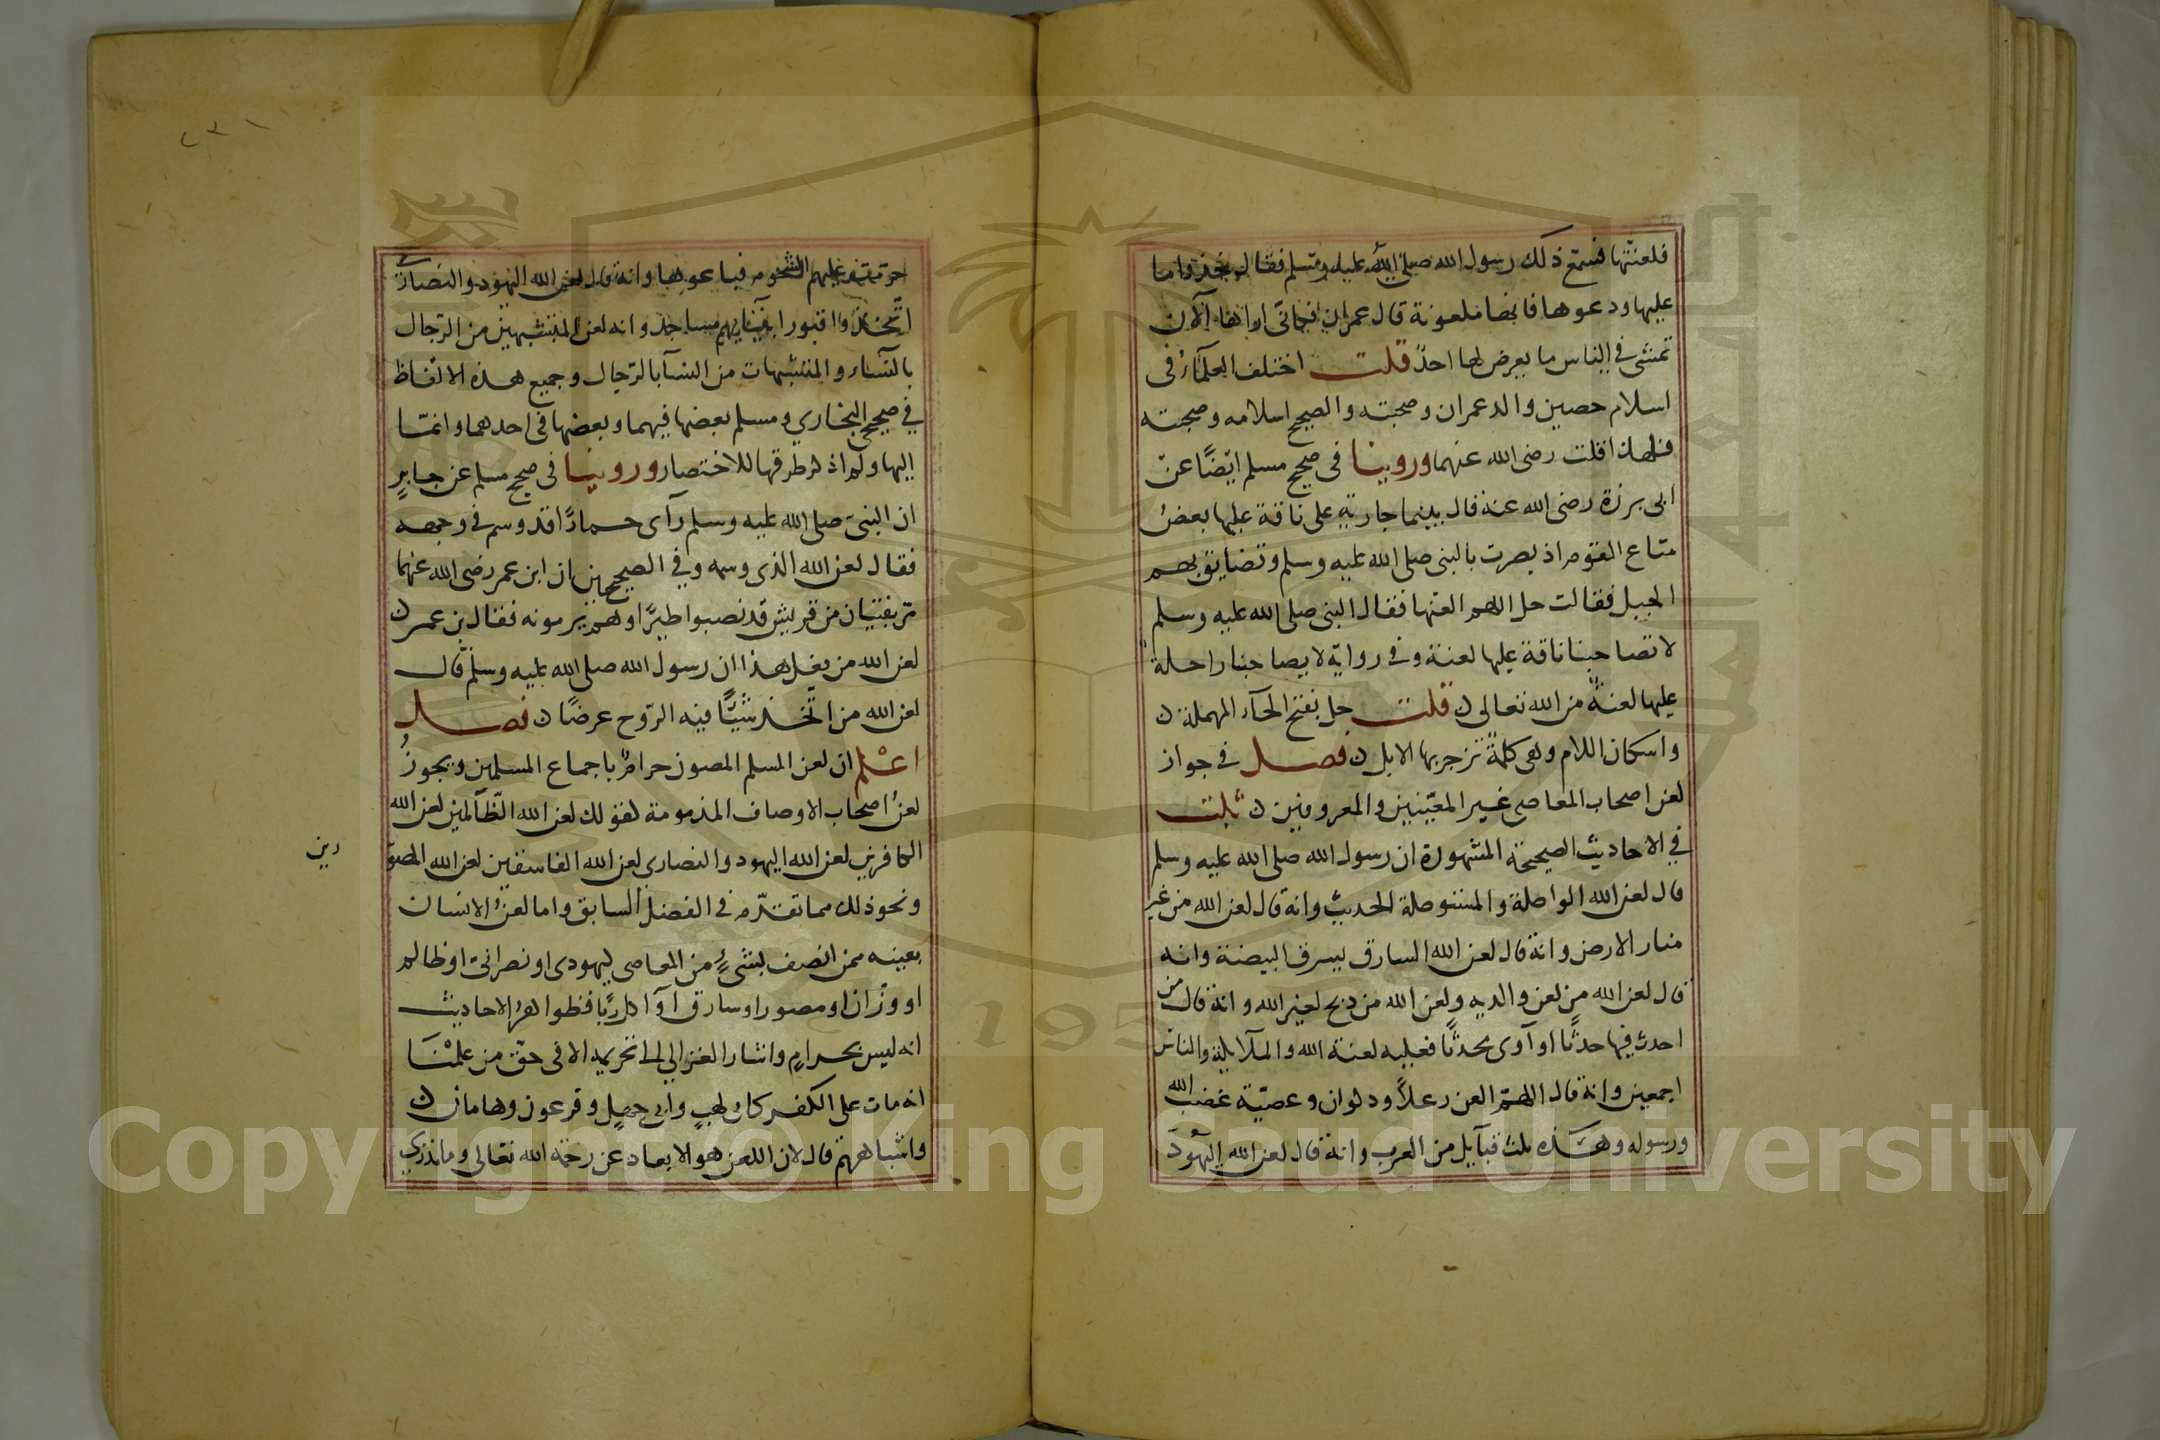 فلعنتها فسمع ذلك رسول الله صلى الله عليه وسلم فقال خذوا ما
عليها ودعوها فانها ملعونة قال عمران فكاني اراها الآن
تمشي في الناس ما يعرض لها احدٌ قلت اختلف العلمآء في
اسلام حصين والد عمران وصحبته والصحيح اسلامه وصحبته
فلهذا قلت رضى الله عنهما وروينا في صحيح مسلم ايضًا عن
ابى برزة رضى الله عنه قال بينما جارية على ناقة عليها بعضُ
متاع القوم اذ بصرت بالنبى صلى الله عليه وسلم وتضايق بهم
الجبل فقالت حل اللهم العنها فقال النبى صلى الله عليه وسلم
لا تصاحبنا ناقة عليها لعنة وفى رواية لا يصاحبنا راحلة
عليها لعنةٌ من الله تعالى ن قلت حل بفتح الحآء المهملة ن
واسكان اللام وهى كلمةٌ تزجر بها الابل ن فصل في جواز
لعن اصحاب المعاصى غير المعيّنين والمعروفين ن ثبت
في الاحاديث الصحيحة المشهورة ان رسول الله صلى الله عليه وسلم
قال لعن الله الواصلة والمستوصلة الحديث وانه قال لعن الله من غير
منار الارض وانه قال لعن الله السارق يسرق البيضة وانه
قال لعن الله من لعن والديه ولعن الله من ذبح لغير الله وانه قال من
احدث فيها حدثًا او آوى محدثًا فعليه لعنة الله والملآئكة والناس
اجمعين وانه قال اللهمّ العن رعلاً وذلوان وعصيّة غضب الله
ورسوله وهذه ثلث قبآيل من العرب وانه قال لعن الله اليهود
حرمت عليهم الشحوم فباعوها وانه قال لعن الله اليهود والنصارى
اتّخذوا قبور انبيآئهم مساجد وانه لعن المتشبهين من الرّجال
بالنّسآء والمتشبهات من النسآ بالرّجال وجميع هذه الالفاظ
في صحيح البخاري ومسلم بعضها فيهما وبعضها في احدهما وانمّا
اليها ولم اذكر طرقها للاختصار وروينا في صحيح مسلم عن جابرٍ
ان النبىّ صلى الله عليه وسلم رآى حمارًا قد وسم في وجهه
فقال لعن الله الذى وسمه وفي الصحيحين ان ابن عمر رضى الله عنهما
مرّ بفتيان من قريش قد نصبوا طيرًا وهم يرمونه فقال بن عمر ن
لعن الله من يفعل هذا ان رسول الله صلى الله عليه وسلم قال
لعن الله من اتّخذ شيًّا فيه الرّوح عرضًا ن فصل
اعْلم ان لعن المسلم المصون حرامٌ باجماع المسلمين ويجوزُ
لعنُ اصحاب الاوصاف المذمومة كقولك لعن الله الظّآلمين لعن الله
الكافرين لعن الله اليهود والنصارى لعن الله الفاسقين لعن الله المصوّ
رين
ونحو ذلك مما تقدّم في الفصل السابق واما لعنُ الانسان
بعينه ممن اتصف بشىءٍ من المعاصى ليهودى او نصرانىّ او ظالم
او وزان او مصور او سارق او آكل ربًا فظواهرُ الاحاديث
انه ليس بحرامٍ واشار الغزالي الى تحريمه الا في حق من علمْنَا
انه مات على الكفر كابى لهبٍ وابى جهلٍ وفرعون وهامان ن
واشباههمّ قال لان اللعن هو الابعاد عن رحمة الله تعالى وما ندري
Copyright © King Saud University